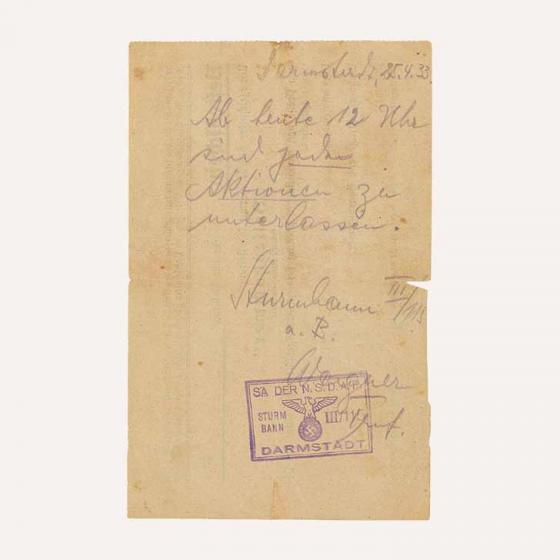 Darmstadt, 25.4.33.
Ab heute 12 Uhr
sind jede
Aktionen zu
unterlassen.
Sturmbann III/115
a. B.
Wagner
Truf.
SA DER N.S.D.A.P.
STURM
BANN III/11
DARMSTADT